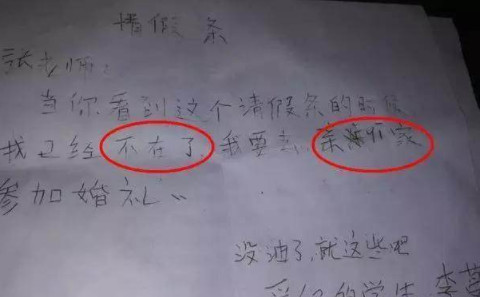 情假条
张老师:
当你看到这个清假条的时候
我已经不在了,我要去亲家
参加婚礼,,
没油了,就这些吧
的学生 李